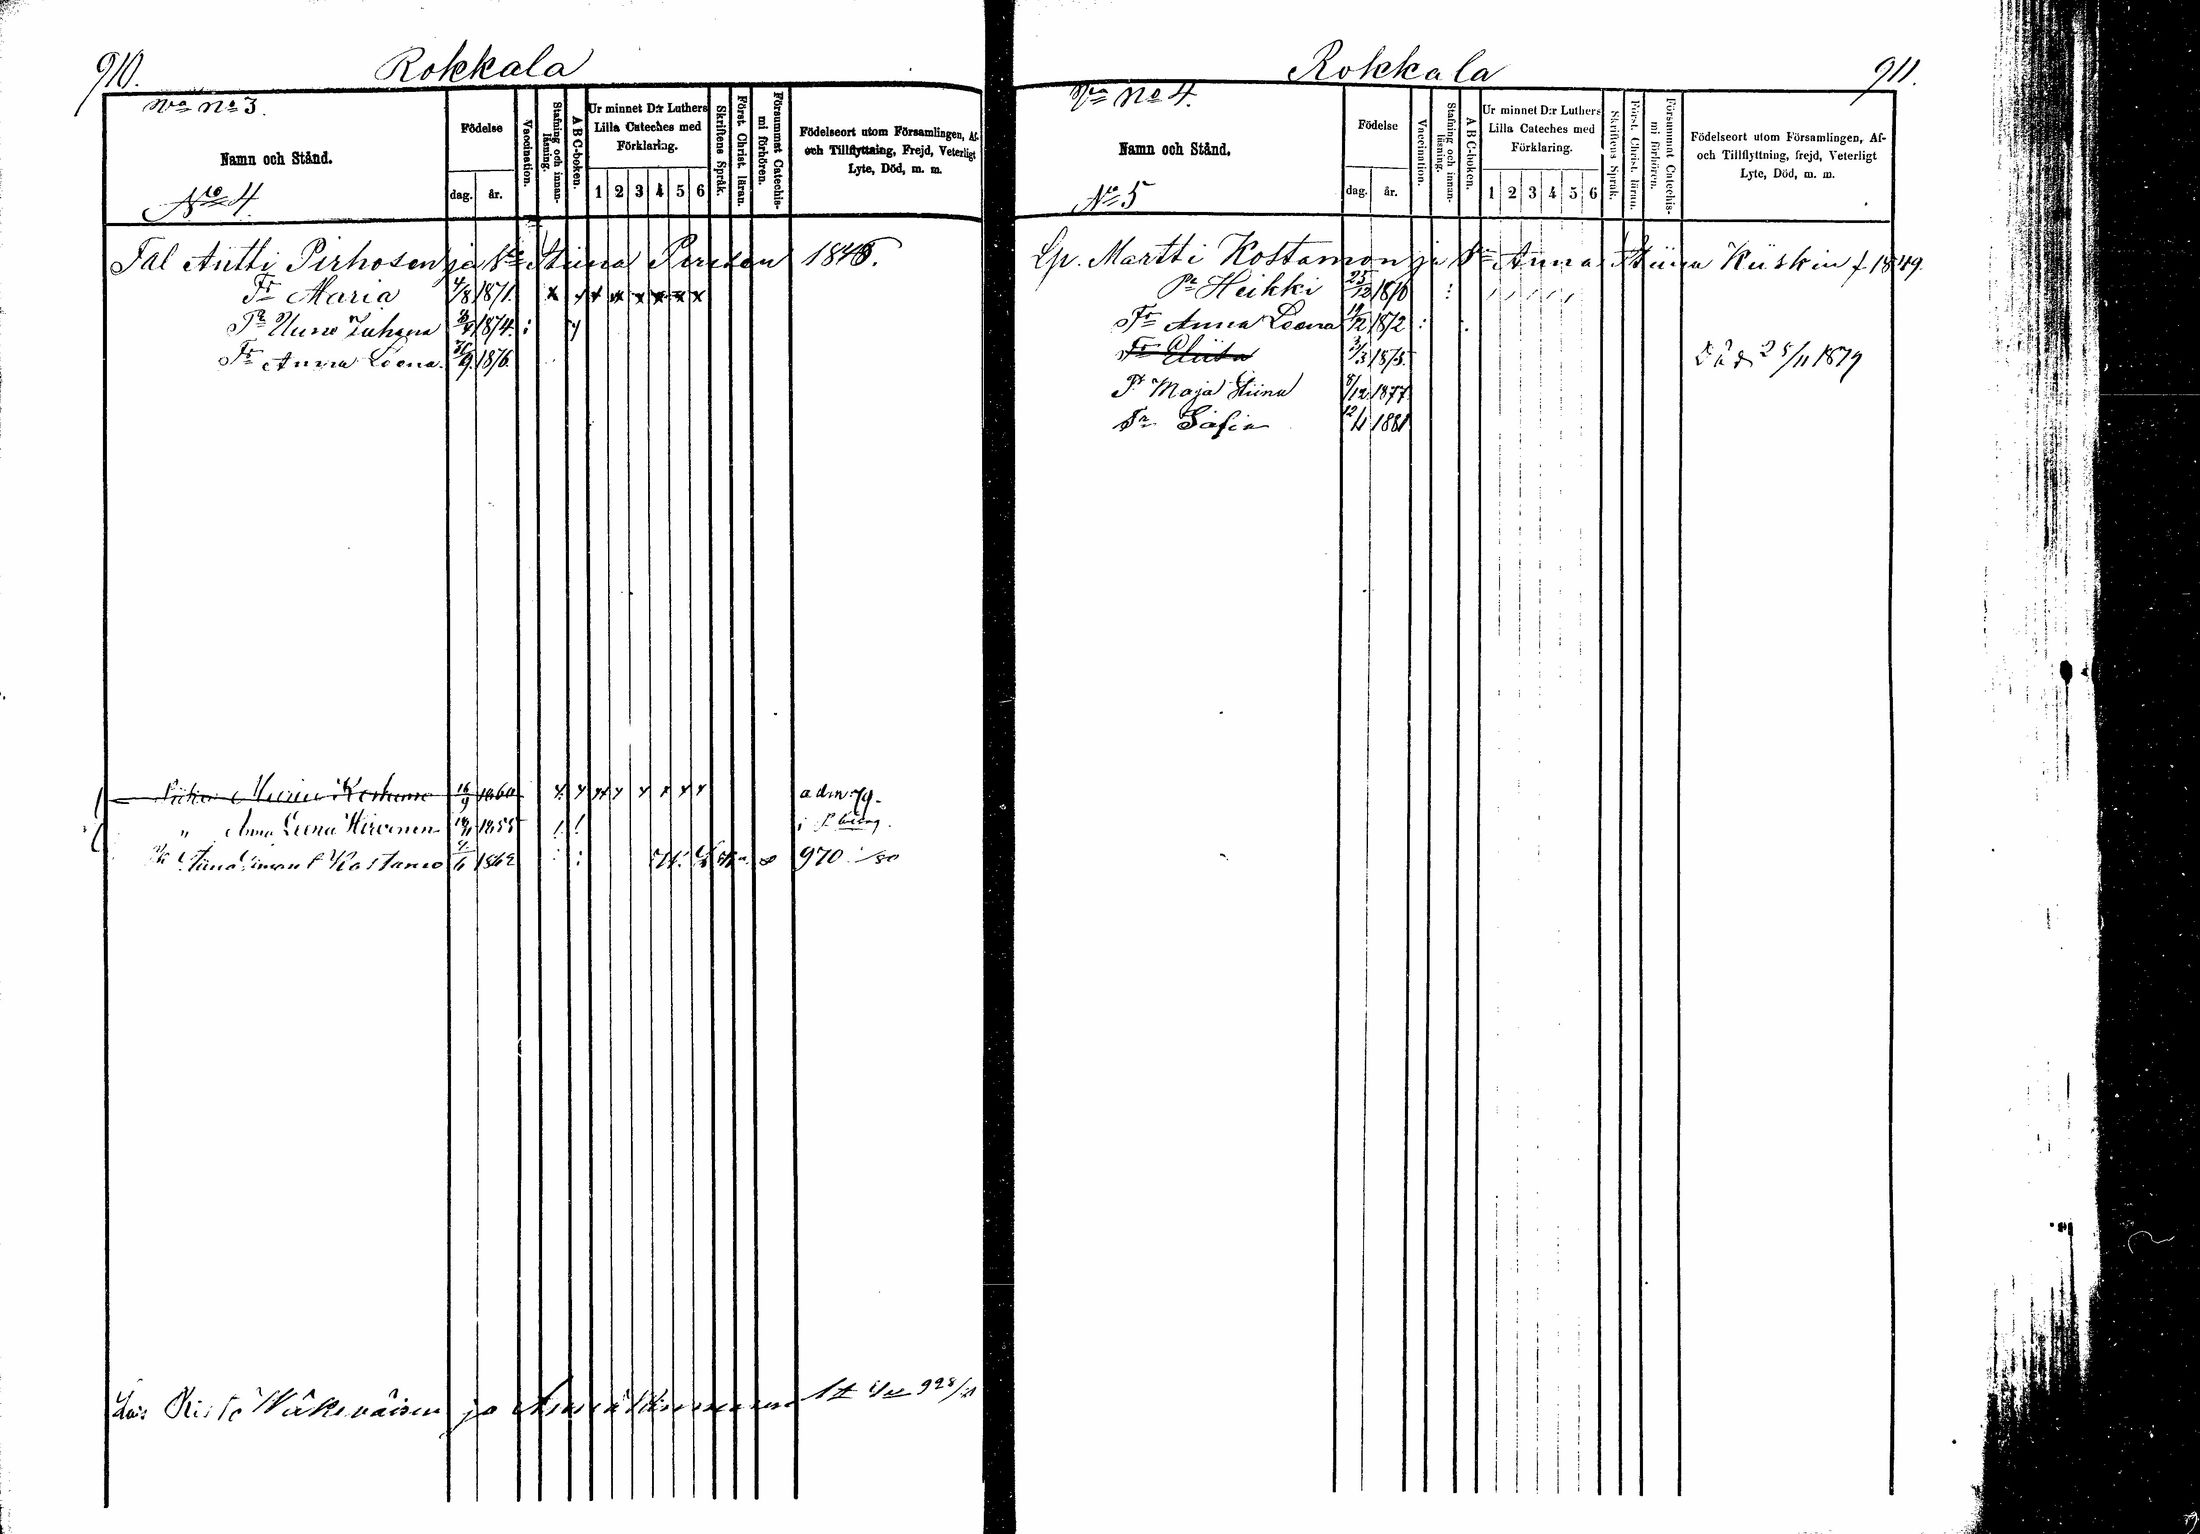 910.
Rokkala
Wa No 3.
Namn och Stånd.
No 4.
Födelse
dag.
år.
Vaccination.
Stafning och innan-
läsning.
A B C-boken.
Ur minnet D:r Luthers
Lilla Cateches med
Förklaring.
1 2 3 4 5 6
Skriftens Språk.
Först. Christ. läran.
Försummat Catechis-
mi förhören.
Födelseort utom Församlingen, Af-
och Tillflyttning, Frejd, Veterligt
Lyte, Död, m. m.
Tal Antti Pirhosen ja Stiina 1846.
Tr Maria 4/8 1871. x x x x x x x
Pr Juhana 1874.
Tr Anna Leena 9. 1876.
Maria 16/9 1860 adm 79.
" Anna Leena Hirvonen 1855
Kostamo 1862 970 /80
Risto Wäkeväisen ja
911.
Rokkala
Wa No 4.
Namn och Stånd.
No 5
Födelse
dag.
år.
Vaccination.
Stafning och innan-
läsning.
A B C-boken.
Ur minnet D:r Luthers
Lilla Cateches med
Förklaring.
1 2 3 4 5 6
Skriftens Språk.
Först. Christ. läran.
Försummat Catechis-
mi förhören.
Födelseort utom Församlingen, Af-
och Tillflyttning, frejd, Veterligt
Lyte, Död, m. m.
Lp. Martti Kostamon ja Anna Stiina Kiiskin f 1849.
Pr Heikki 25/12 1870
Tr Anna Leena 1872
Tr 3/3 1875. Död 25/11 1879
Maja Stiina 8/12 1877
Tr Sofia 12/4 1881